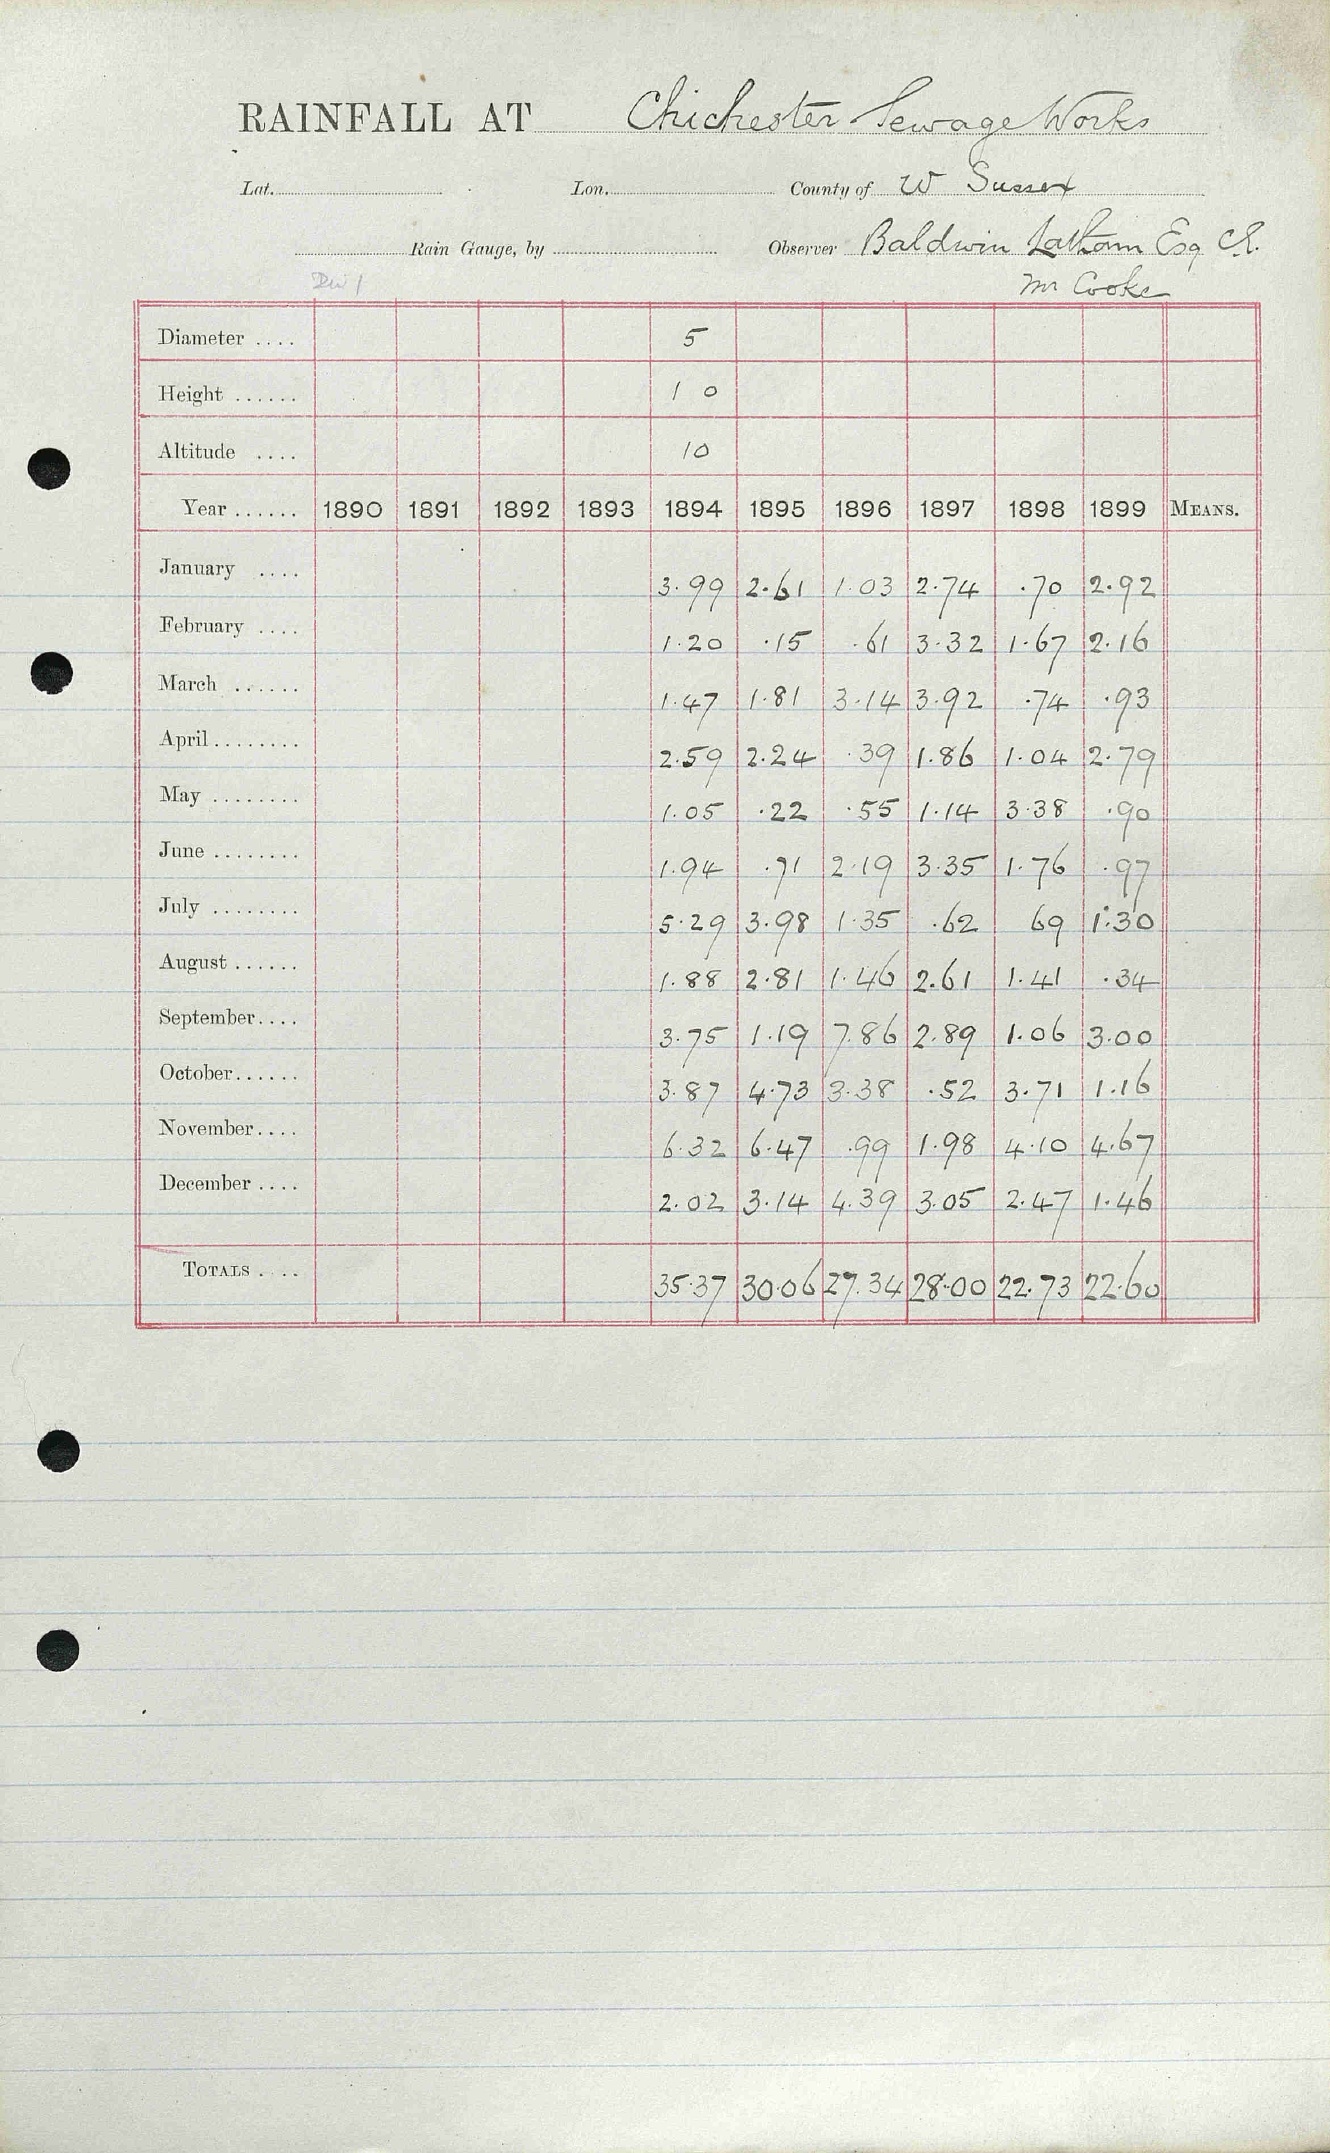 RAINFALL AT Chichester Sewage Works
Lat. Lon. County of W Sussex
Rain Gauge, by Observer Baldwin Latham Esq C.E.
Div 1 Mr Cooke
Diameter .... 5
Height ...... 1 0
Altitude .... 10
Year ...... 1890 1891 1892 1893 1894 1895 1896 1897 1898 1899 MEANS.
January .... 3.99 2.61 1.03 2.74 .70 2.92
February .... 1.20 .15 .61 3.32 1.67 2.16
March ...... 1.47 1.81 3.14 3.92 .74 .93
April ........ 2.59 2.24 .39 1.86 1.04 2.79
May ........ 1.05 .22 .55 1.14 3.38 .90
June ........ 1.94 .71 2.19 3.35 1.76 .97
July ........ 5.29 3.98 1.35 .62 69 1.30
August ...... 1.88 2.81 1.46 2.61 1.41 .34
September.... 3.75 1.19 7.86 2.89 1.06 3.00
October...... 3.87 4.73 3.38 .52 3.71 1.16
November.... 6.32 6.47 .99 1.98 4.10 4.67
December .... 2.02 3.14 4.39 3.05 2.47 1.46
TOTALS .... 35.37 30.06 27.34 28.00 22.73 22.60